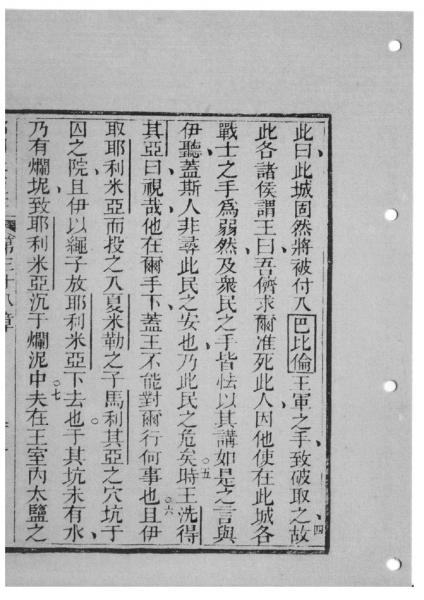 此曰此城固然將被付入巴比倫王軍之手致破取之故四
此各諸侯謂王曰吾儕求爾准死此人因他使在此城各
戰士之手為弱然及衆民之手皆怯以其講如是之言與
伊聽蓋斯人非尋此民之安也乃此民之危矣○五時王洗得
其亞曰視哉他在爾手下蓋王不能對爾行何事也○六且伊
取耶利米亞而投之入夏米勒之子馬利其亞之穴坑于
囚之院且伊以繩子放耶利米亞下去也○于其坑未有水
乃有爛坭致耶利米亞沉于爛泥中○七夫在王室內太鹽之
第三十八章